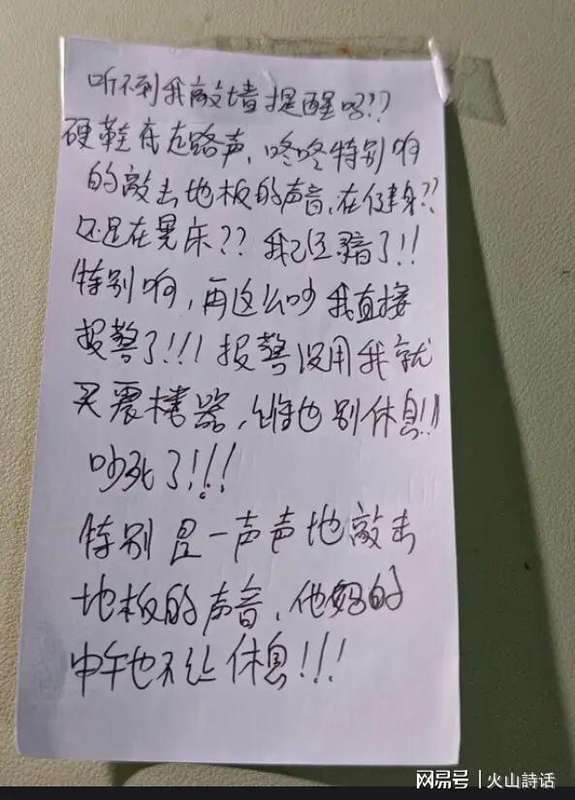 听不到我敲墙提醒吗??
硬鞋底走路声、咚咚特别响
的敲击地板的声音、在健身??
还是在晃床?? 我已经 了!!
特别响，再这么吵我直接
报警了!!! 报警没用我就
买震楼器，谁也别休息!!
吵死了!!!
特别是一声声地敲击
地板的声音，他妈的
中午也不让休息!!!
网易号 | 火山詩话